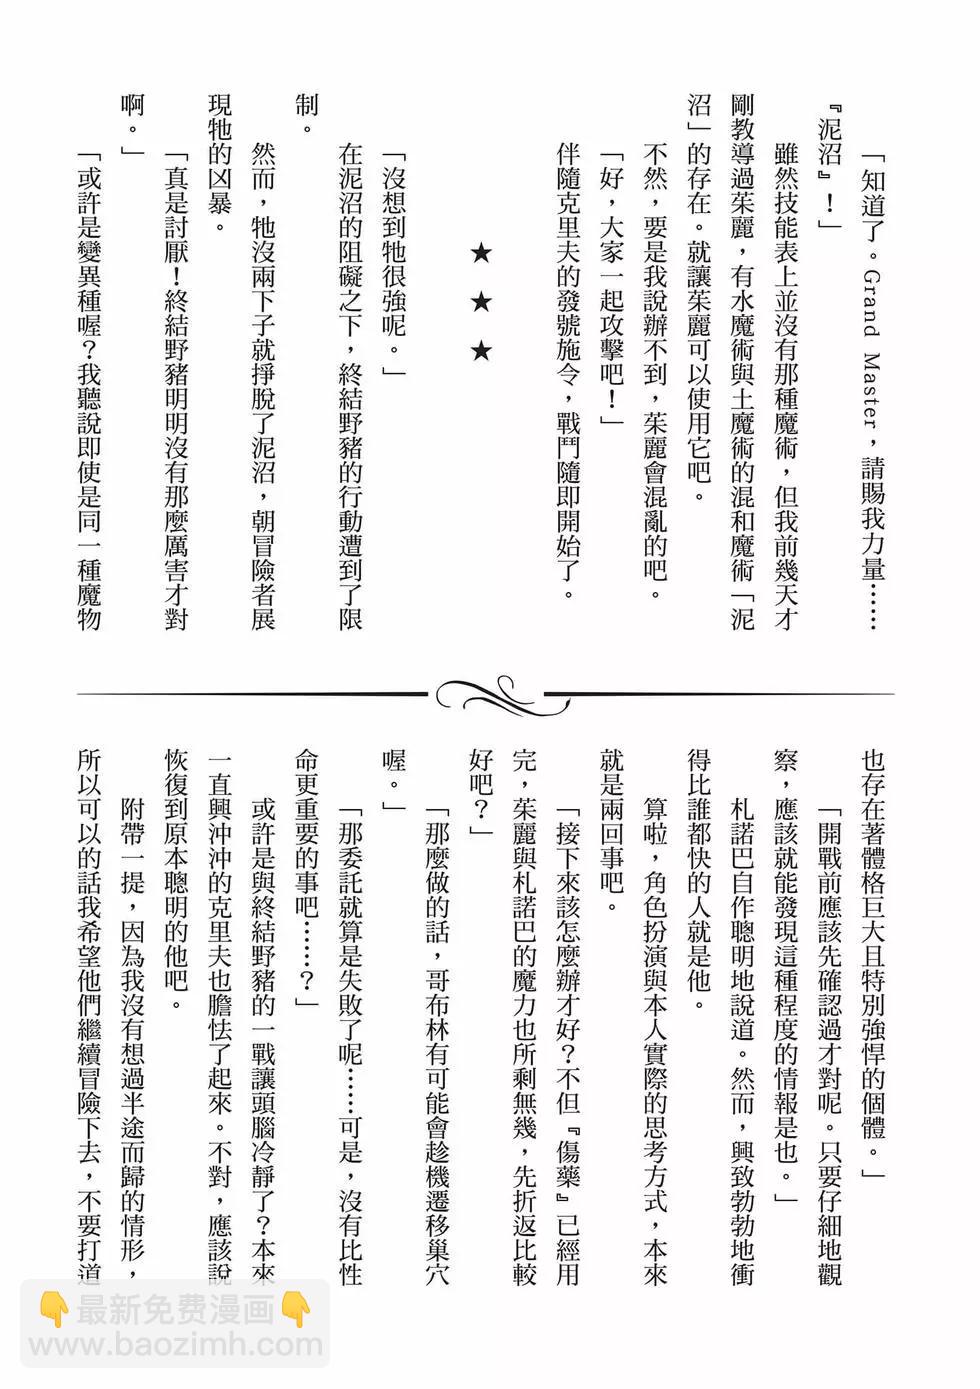 「知道了。Grand Master，請賜我力量……
『泥沼』！」
雖然技能表上並沒有那種魔術，但我前幾天才
剛教導過茱麗，有水魔術與土魔術的混和魔術「泥
沼」的存在。就讓茱麗可以使用它吧。
不然，要是我說辦不到，茱麗會混亂的吧。
「好，大家一起攻擊吧！」
伴隨克里夫的發號施令，戰鬥隨即開始了。
★ ★ ★
「沒想到牠很強呢。」
在泥沼的阻礙之下，終結野豬的行動遭到了限
制。
然而，牠沒兩下子就掙脫了泥沼，朝冒險者展
現牠的凶暴。
「真是討厭！終結野豬明明沒有那麼厲害才對
啊。」
「或許是變異種喔？我聽說即使是同一種魔物
也存在著體格巨大且特別強悍的個體。」
「開戰前應該先確認過才對呢。只要仔細地觀
察，應該就能發現這種程度的情報是也。」
札諾巴自作聰明地說道。然而，興致勃勃地衝
得比誰都快的人就是他。
算啦，角色扮演與本人實際的思考方式，本來
就是兩回事吧。
「接下來該怎麼辦才好？不但『傷藥』已經用
完，茱麗與札諾巴的魔力也所剩無幾，先折返比較
好吧？」
「那麼做的話，哥布林有可能會趁機遷移巢穴
喔。」
「那委託就算是失敗了呢……可是，沒有比性
命更重要的事吧……？」
或許是與終結野豬的一戰讓頭腦冷靜了？本來
一直興沖沖的克里夫也膽怯了起來。不對，應該說
恢復到原本聰明的他吧。
附帶一提，因為我沒有想過半途而歸的情形，
所以可以的話我希望他們繼續冒險下去，不要打道
👇最新免费漫画👇
www.baozimh.com